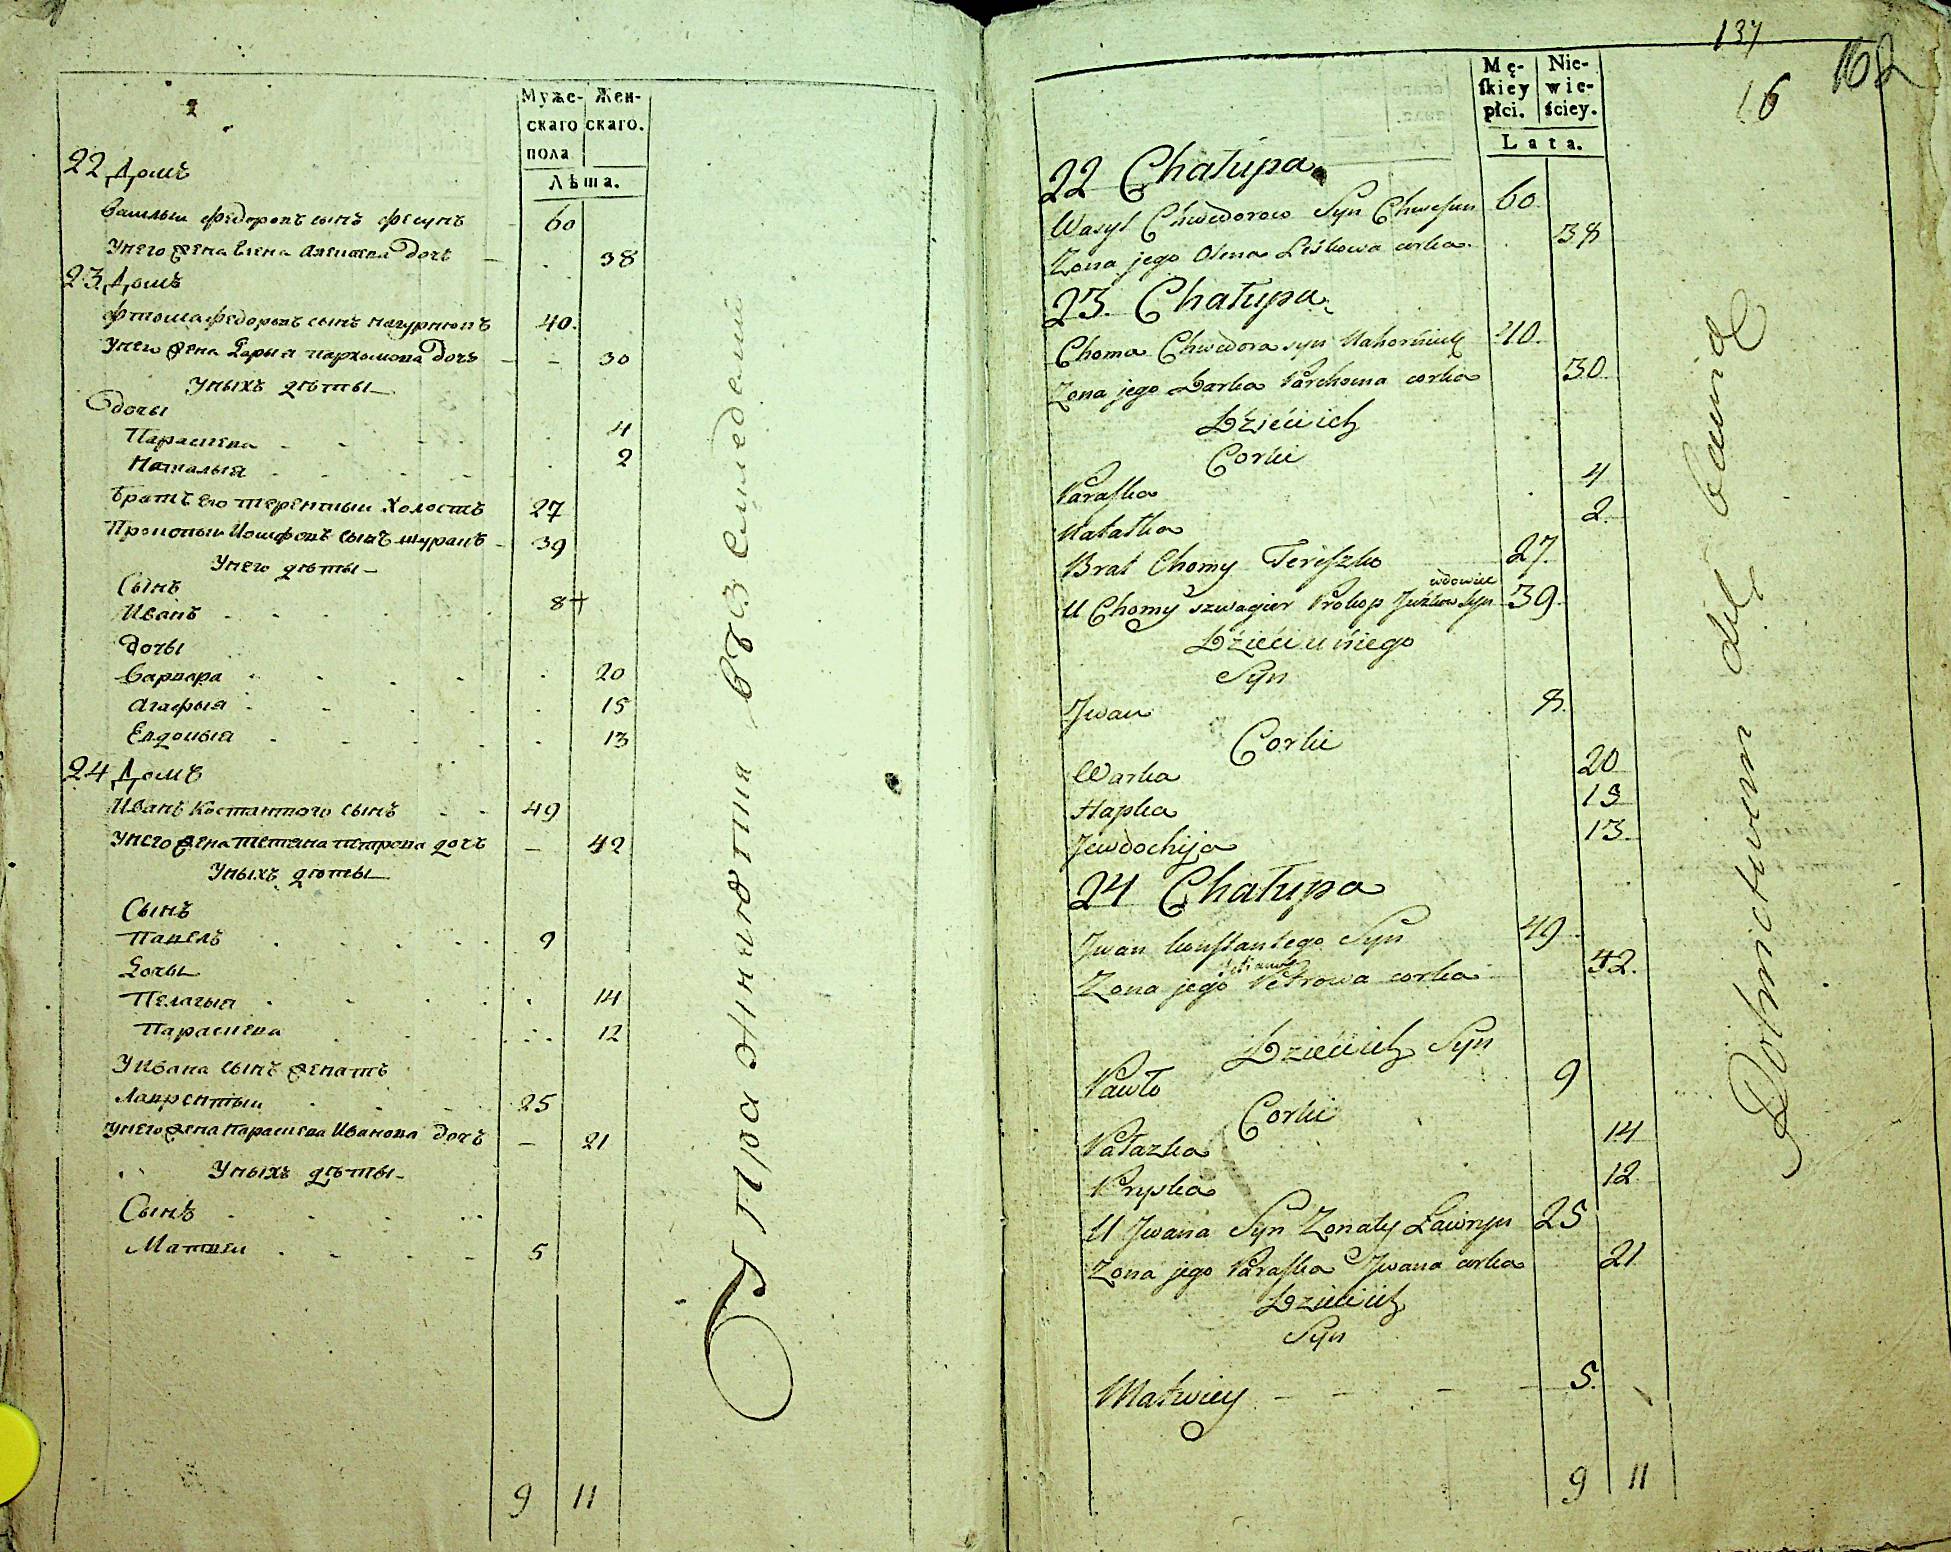 Муже- Жен-
скаго скаго.
пола
Лѣта.
22 Домъ
Василий Федоровъ сынъ Фесунъ 60
У него жена Елена Алексеева дочь 38
23 Домъ
Фтома Федоровъ сынъ 40.
У него жена Дарья Пархомова дочь 30
У ныхъ дѣты
дочы
Параскева 4
Наталья 2
Братъ его Терентый Холостъ 27
Прокопый Иосифовъ сынъ 39
У него дѣты
Сынъ
Иванъ 8 +
дочы
Варвара 20
Агафья 15
Евдокия 13
24 Домъ
Иванъ Костантого сынъ 49
У него жена Тетяна Петрова дочъ 42
У ныхъ дѣты
Сынъ
Павелъ 9
Дочы
Пелагыя 14
Параскева 12
У Ивана сынъ женатъ
Лаврентый 25
У него жена Параскева Иванова дочъ 21
У ныхъ дѣты
Сынъ
Матвей 5
9 11
137
16 168
Mę- Nie-
skiey wie-
płci. ściey.
Lata.
22 Chałupa
Wasyl Chwedorow Syn Chwesun 60
Zona jego Olena Leśkowa corka 38
23. Chałupa
Choma Chwedora syn 40.
Zona jego Darka Parchoma corka 30
Dzieci ich
Corki
Paraska 4
Natałka 2.
Brat Chomy Tereszko 27.
wdowiec
U Chomy szwagier Prokop Juzkow Syn 39.
Dzieci u niego
Syn
Jwan 8.
Corki
Warka 20
Hapka 15
Jewdochija 13
24 Chałupa
Jwan konstantego Syn 49
Tetianna
Zona jego Petrowa corka 42.
Dzieci ich Syn
Pawło 9
Corki
Pałazka 14
Pryska 12
U Jwana Syn Zonaty Ławryn 25
Zona jego Paraska Jwana corka 21
Dzieci ich
Syn
Matwiey 5.
9 11